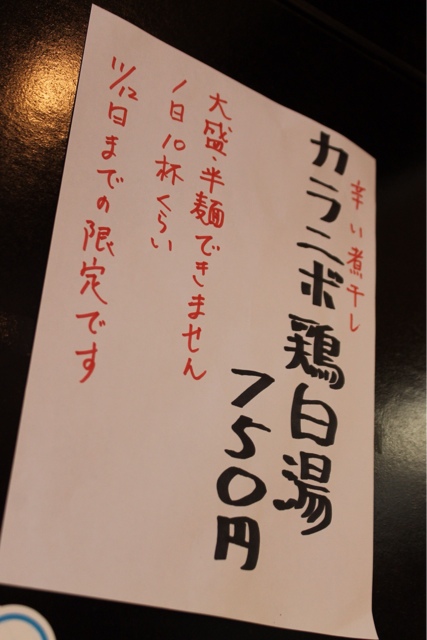 辛い煮干し
カラニボ鶏白湯
750円
大盛・半麺できません
1日10杯くらい
11/12日までの限定です